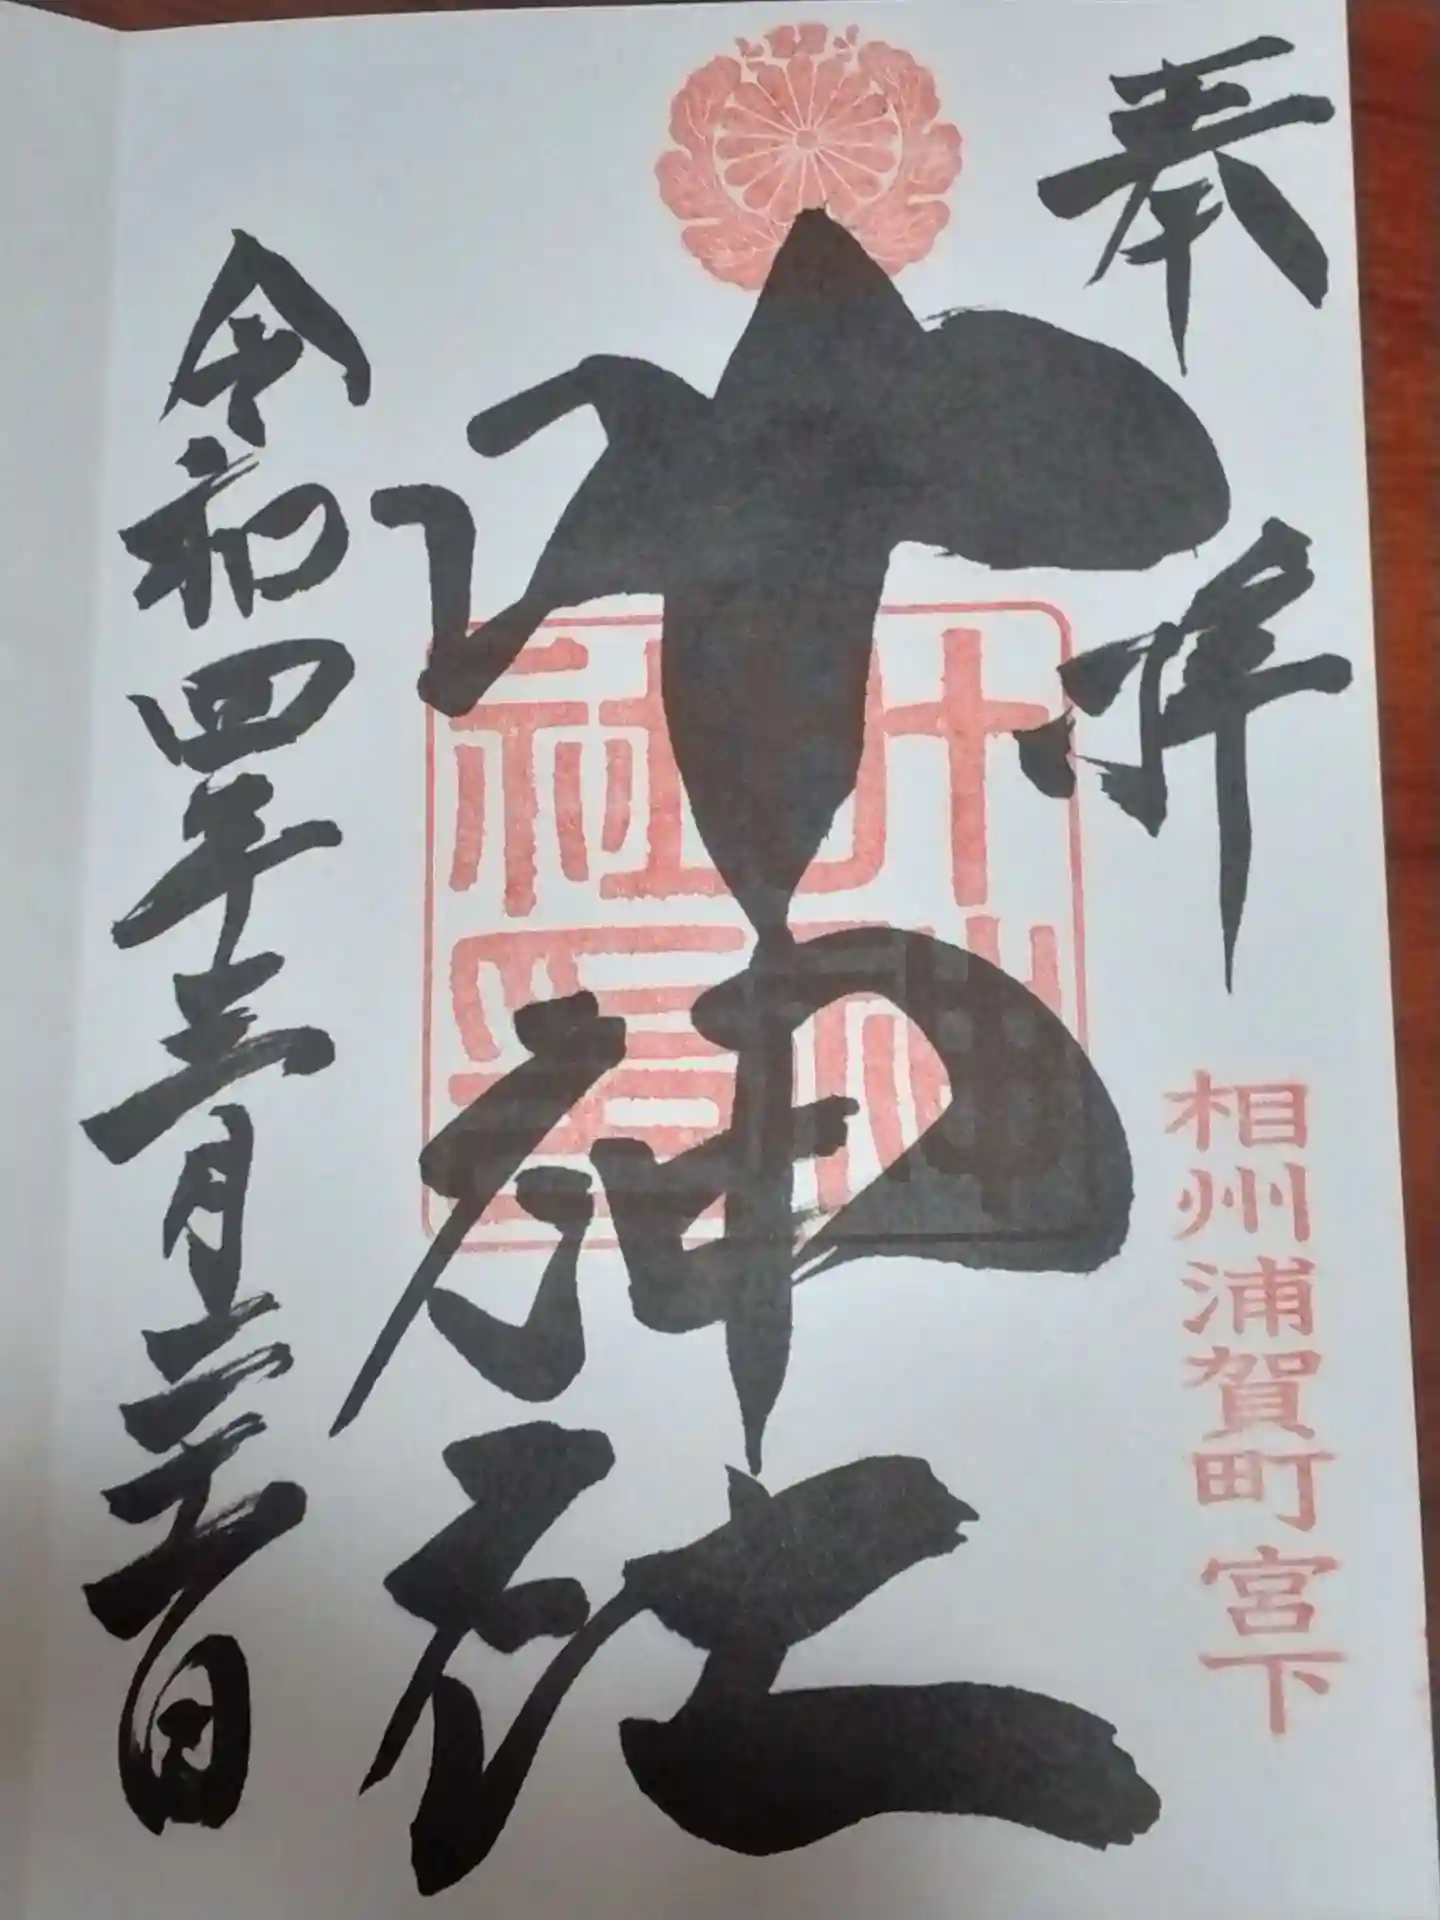 奉拝
相州浦賀町宮下
叶神社
令和四年三月二十六日